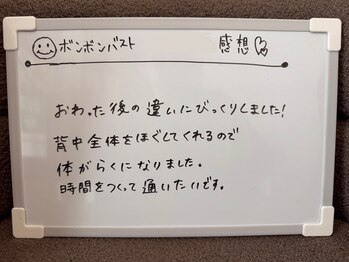 ボンボンバスト 感想
おわった後の違いにびっくりしました!
背中全体をほぐしてくれるので
体がらくになりました。
時間をつくって通いたいです。